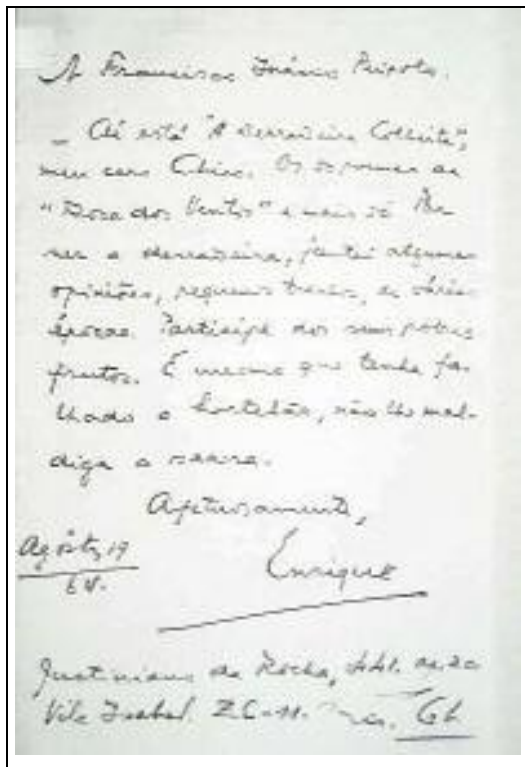 A Francisco Inácio Peixoto.
_ Aí está "A derradeira Colheita",
meu caro Chico. Os poemas de
"Rosa dos Ventos" e mais
ser a derradeira, juntei algumas
opiniões, pequenos trechos, de várias
épocas. Participe dos seus pobres
frutos. E mesmo que tenha fa-
lhado o hortelão, não lho mal-
diga a seara.
Afetuosamente,
Agosto, 19
64.
Enrique
Justiniano da Rocha,
Vila Isabel. ZC-11. GB